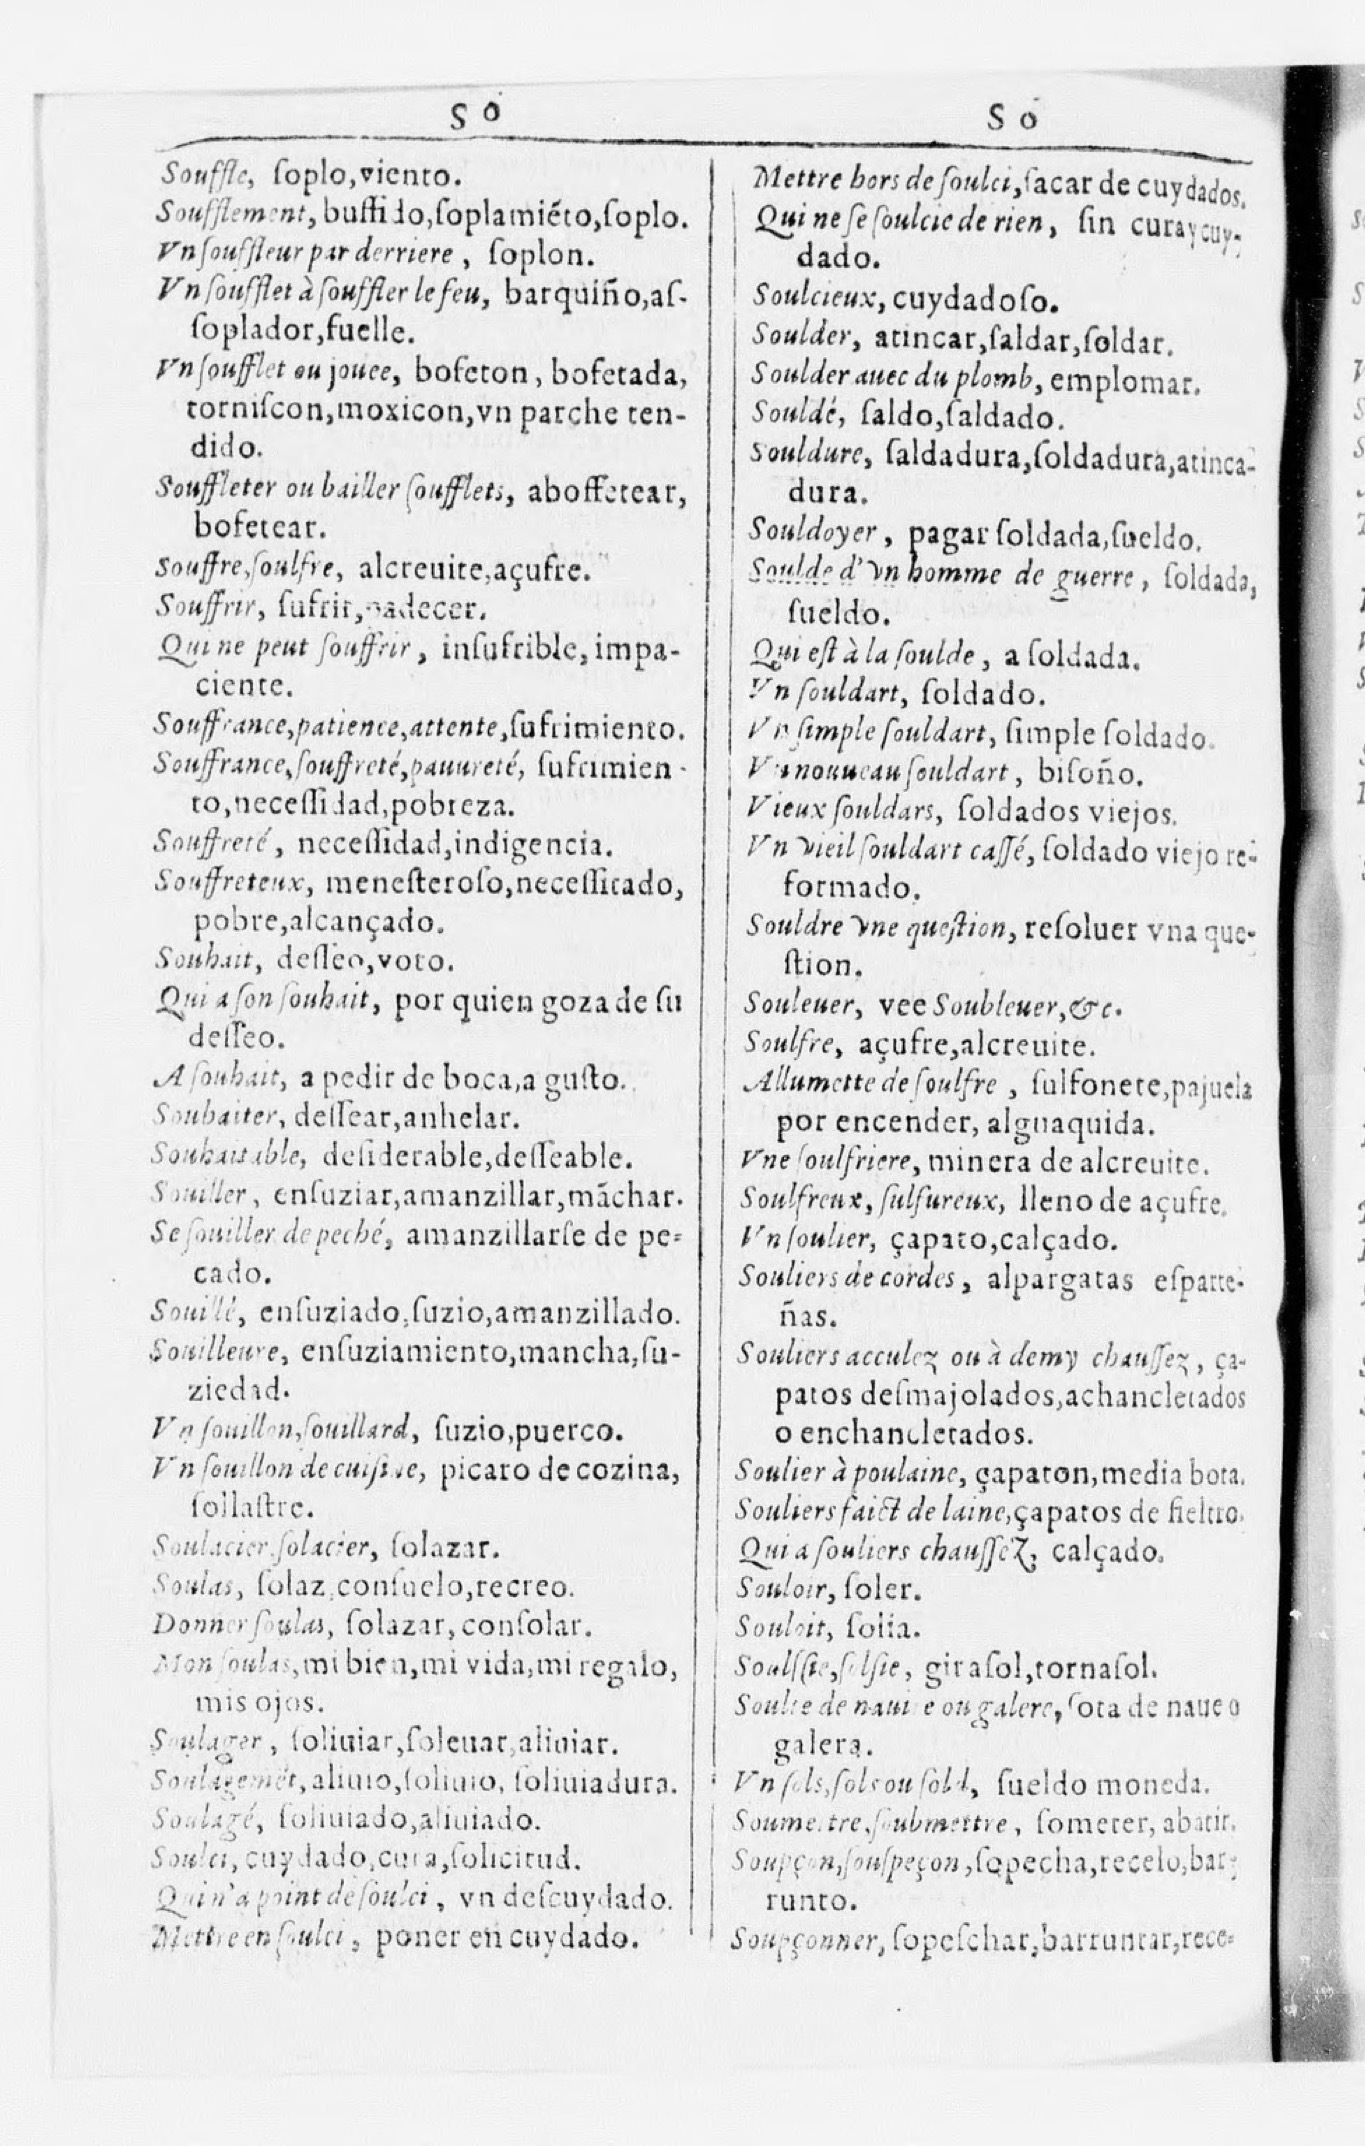 S O
Souffle, ſoplo,viento.
Soufflement, buffido,ſoplamiẽto,ſoplo.
Vn ſouffleur par derriere, ſoplon.
Vn ſoufflet à ſouffler le feu, barquiño,aſ-
ſoplador,fuelle.
Vn ſoufflet ou jouee, bofeton, bofetada,
torniſcon,moxicon,vn parche ten-
dido.
Souffleter ou bailler ſoufflets, aboffetear,
bofetear.
Souffre,ſoulfre, alcreuite,açufre.
Souffrir, ſufrir,padecer.
Qui ne peut ſouffrir, inſufrible, impa-
ciente.
Souffrance,patience,attente,ſufrimiento.
Souffrance,ſouffreté,pauureté, ſufrimien-
to,neceſſidad,pobreza.
Souffreté, neceſſidad,indigencia.
Souffreteux, meneſteroſo,neceſſitado,
pobre,alcançado.
Souhait, deſſeo,voto.
Qui a ſon ſouhait, por quien goza de ſu
deſſeo.
A ſouhait, a pedir de boca,a guſto.
Souhaiter, deſſear,anhelar.
Souhaitable, deſiderable,deſſeable.
Souiller, enſuziar,amanzillar,mãchar.
Se ſouiller de peché, amanzillarſe de pe-
cado.
Souillé, enſuziado,ſuzio,amanzillado.
Souilleure, enſuziamiento,mancha,ſu-
ziedad.
Vn ſouillon,ſouillard, ſuzio,puerco.
Vn ſouillon de cuiſine, picaro de cozina,
ſollaſtre.
Soulacier,ſolacier, ſolazar.
Soulas, ſolaz,conſuelo,recreo.
Donner ſoulas, ſolazar, conſolar.
Mon ſoulas,mi bien,mi vida,mi regalo,
mis ojos.
Soulager, ſoliuiar,ſoleuar,aliuiar.
Soulagemẽt, aliuio,ſoliuio, ſoliuiadura.
Soulagé, ſoliuiado,aliuiado.
Soulci, cuydado,cura,ſolicitud.
Qui n'a point de ſoulci, vn deſcuydado.
Mettre en ſoulci, poner en cuydado.
S o
Mettre hors de ſoulci,ſacar de cuydados.
Qui ne ſe ſoulcie de rien, ſin cura y cuy-
dado.
Soulcieux, cuydadoſo.
Soulder, atincar,ſaldar,ſoldar.
Soulder auec du plomb, emplomar.
Souldé, ſaldo,ſaldado.
Souldure, ſaldadura,ſoldadura,atinca-
dura.
Souldoyer, pagar ſoldada,ſueldo.
Soulde d'vn homme de guerre, ſoldada,
ſueldo.
Qui eſt à la ſoulde, a ſoldada.
Vn ſouldart, ſoldado.
Vn ſimple ſouldart, ſimple ſoldado.
Vn nouueau ſouldart, biſoño.
Vieux ſouldars, ſoldados viejos.
Vn vieil ſouldart caſſé, ſoldado viejo re-
formado.
Souldre vne queſtion, reſoluer vna que-
ſtion.
Souleuer, vee Soubleuer,&c.
Soulfre, açufre,alcreuite.
Allumette de ſoulfre, ſulfonete,pajuela
por encender, alguaquida.
Vne ſoulfriere, minera de alcreuite.
Soulfreux, ſulfureux, lleno de açufre.
Vn ſoulier, çapato,calçado.
Souliers de cordes, alpargatas eſparte-
ñas.
Souliers acculez ou à demy chauſſez, ça-
patos deſmajolados,achancletados
o enchancletados.
Soulier à poulaine, çapaton,media bota.
Souliers faict de laine,çapatos de fieltro.
Qui a ſouliers chauſſez, calçado.
Souloir, ſoler.
Souloit, ſolia.
Soulſſie,ſolſie, giraſol,tornaſol.
Soulte de nauire ou galere, ſota de naue o
galera.
Vn ſols,ſols ou ſold, ſueldo moneda.
Soumettre,ſoubmettre, ſometer, abatir.
Soupçon,ſouſpeçon,ſopecha,recelo,bar-
runto.
Soupçonner, ſopeſchar,barruntar,rece-